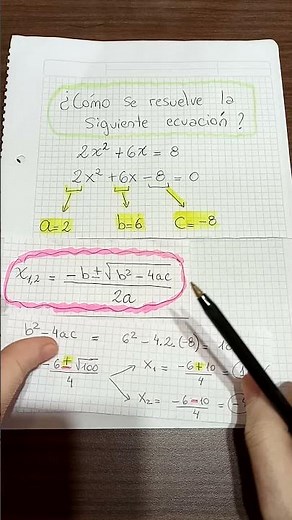 ¿Cómo se resuelve la
siguiente ecuación?
2x² + 6x = 8
2x² + 6x - 8 = 0
a = 2 b = 6 c = -8
x₁,₂ = (-b ± √(b² - 4ac)) / 2a
b² - 4ac = 6² - 4.2.(-8) =
-6 ± √100 / 4
x₁ = (-6 + 10) / 4 =
x₂ = (-6 - 10) / 4 =